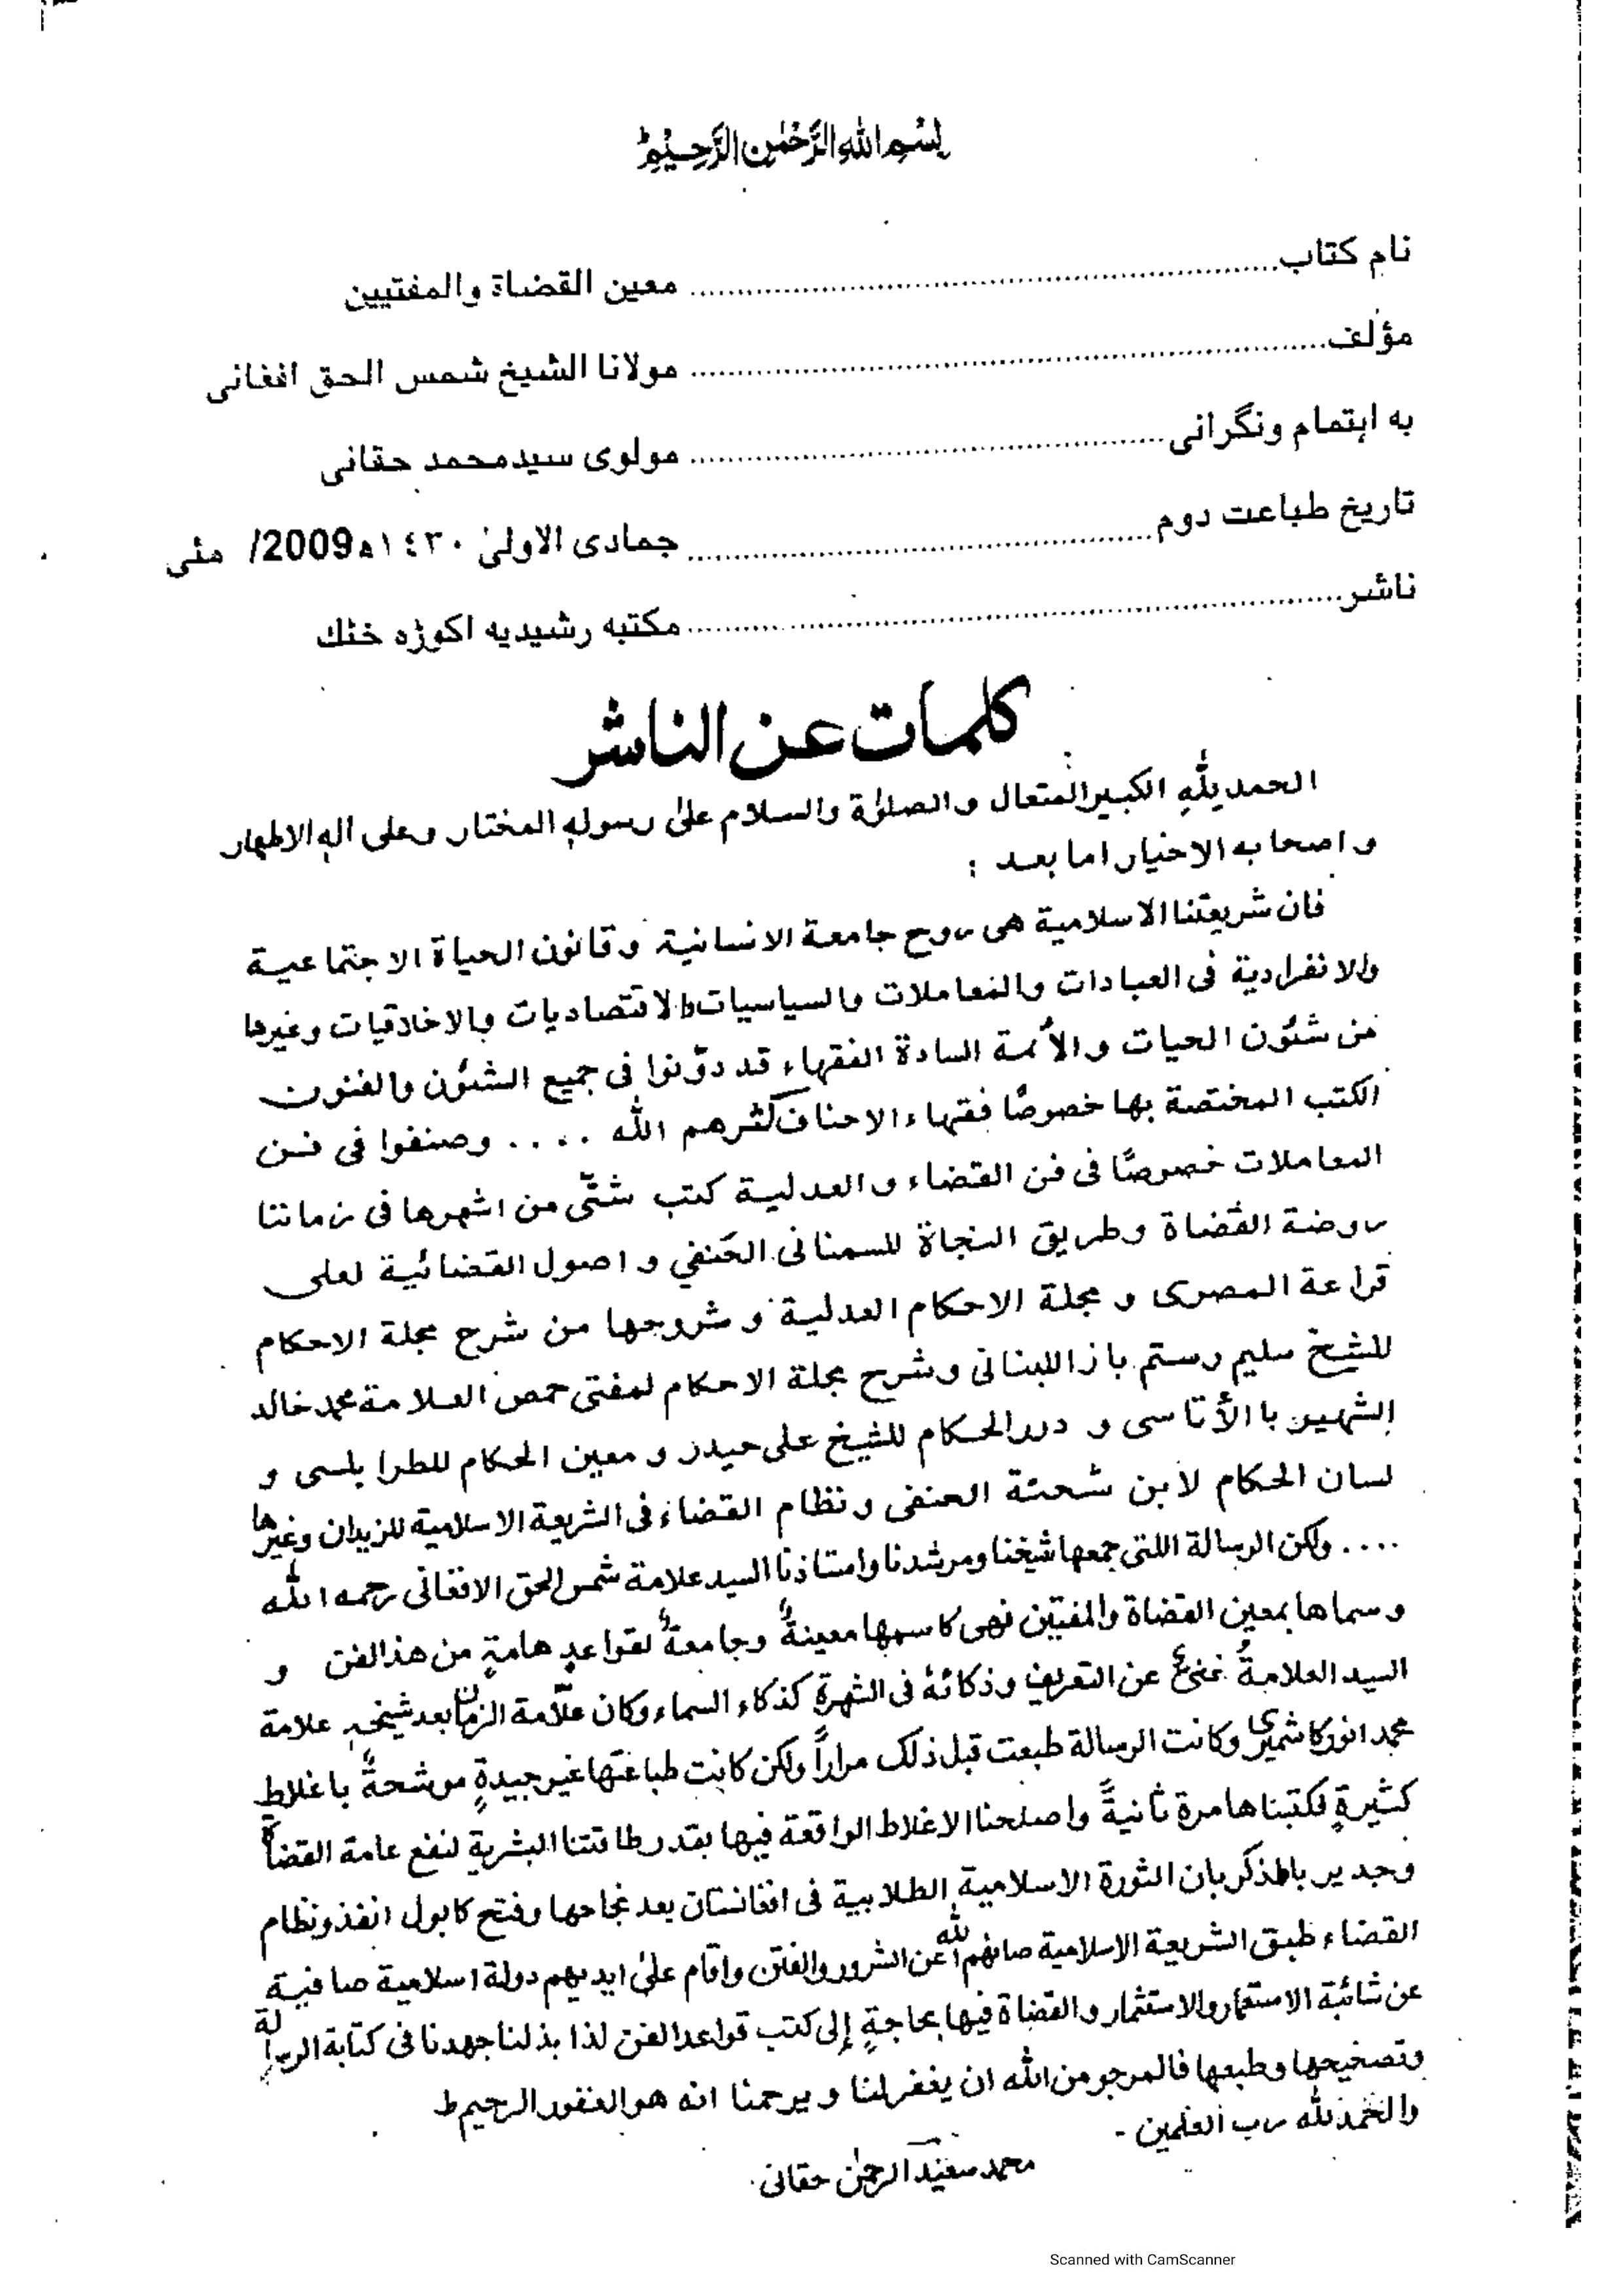 بسم الله الرحمن الرحيم
نام كتاب........................ معين القضاة والمفتيين
مؤلف........................ مولانا الشيخ شمس الحق افغانی
به اہتمام ونگرانی........................ مولوی سيدمحمد حقانی
تاريخ طباعت دوم........................ جمادى الاولىٰ ١٤٣٠ه2009/ مئی
ناشر........................ مكتبه رشيديه اكوڑه خٹك
كلمات عن الناشر
الحمد للّٰه الكبير المتعال و الصلوٰة والسلام علىٰ رسوله المختار وعلى اله الاطهار
و اصحابه الاخيار اما بعد :
فان شريعتنا الاسلامية هى روح جامعة الانسانية وقانون الحياة الاجتماعية
والانفرادية فى العبادات والمعاملات والسياسيات والاقتصاديات والاخلاقيات وغيرها
من شئون الحيات والأئمة السادة الفقهاء قد دوّنوا فى جميع الشئون والفنون
الكتب المختصة بها خصوصًا فقهاء الاحناف كثرهم الله .... وصنفوا فى فن
المعاملات خصوصًا فى فن القضاء والعدلية كتب شتّى من اشهرها فى زماننا
روضة القضاة وطريق النجاة للسمنانى الحنفي و اصول القضائية لعلى
قراعة المصرى و مجلة الاحكام العدلية و شروحها من شرح مجلة الاحكام
للشيخ سليم رستم باز اللبنانى وشرح مجلة الاحكام لمفتى حمص العلامة محمد خالد
الشهير باالأتاسى و دررالحكام للشيخ على حيدر و معين الحكام للطرابلسى و
لسان الحكام لابن شحنة الحنفى و نظام القضاء فى الشريعة الاسلامية للزيدان وغيرها
.... ولكن الرسالة اللتى جمعها شيخنا ومرشدنا واستاذنا السيد علامة شمس الحق الافغانى رحمه الله
وسماها بمعين القضاة والمفتين فهى كاسمها معينةٌ وجامعةٌ لقواعدٍ هامةٍ من هذالفن و
السيد العلامةُ غنىٌ عن التعريف وذكائهٗ فى الشهرة كذكاء السماء وكان علّامة الزمان بعد شيخه علامة
محمد انور كاشميرى وكانت الرسالة طبعت قبل ذلك مراراً ولكن كانت طباعتها غير جيدةٍ موشحةٌ باغلاط
كثيرةٍ فكتبناها مرة ثانيةً واصلحنا الاغلاط الواقعة فيها بقدر طاقتنا البشرية لنفع عامة القضاة
وجدير بالذكر بان الثورة الاسلامية الطلابية فى افغانستان بعد نجاحها وفتح كابول انفذو نظام
القضاء طبق الشريعة الاسلامية صانهم الله عن الشرور والفتن واقام علىٰ ايديهم دولة اسلامية صافية
عن شائبة الاستعمار والاستثمار والقضاة فيها بحاجةٍ إلى كتب قواعد الفن لذا بذلنا جهدنا فى كتابة الرسالة
وتصحيحها وطبعها فالمرجو من الله ان يغفرلنا و يرحمنا انه هو الغفور الرحيم ط
والحمد لله رب العلمين -
محمد سعيد الرحمٰن حقانی
Scanned with CamScanner